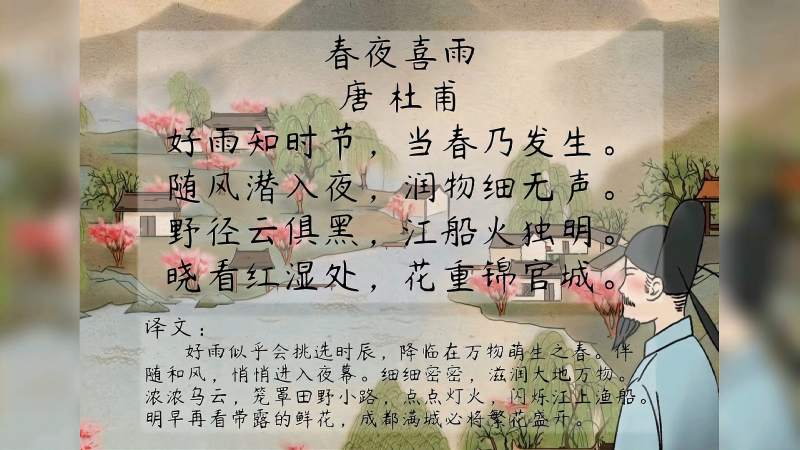 春夜喜雨
唐 杜甫
好雨知时节，当春乃发生。
随风潜入夜，润物细无声。
野径云俱黑，江船火独明。
晓看红湿处，花重锦官城。
译文：
好雨似乎会挑选时辰，降临在万物萌生之春。伴
随和风，悄悄进入夜幕。细细密密，滋润大地万物。
浓浓乌云，笼罩田野小路，点点灯火，闪烁江上渔船。
明早再看带露的鲜花，成都满城必将繁花盛开。